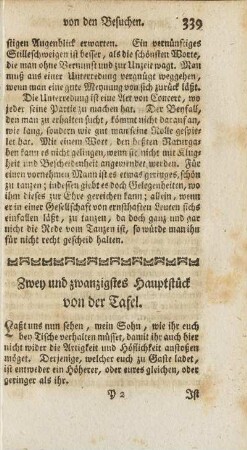 von den Besuchen. 339
stigen Augenblick erwarten. Ein vernünftiges
Stilleschweigen ist besser, als die schönsten Worte,
die man ohne Vernunft und zur Unzeit wagt. Man
muß aus einer Unterredung vergnügt weggehen,
wenn man eine gute Meynung von sich zurück läßt.
Die Unterredung ist eine Art von Concert, wo
jeder seine Partie zu machen hat. Der Beyfall,
den man zu erhalten sucht, kömmt nicht darauf an,
wie lang, sondern wie gut man seine Rolle gespie-
let hat. Mit einem Wort, den besten Naturga-
ben kann es nicht gelingen, wenn sie nicht mit Klug-
heit und Bescheidenheit angewendet werden. Für
einen vornehmen Mann ist es etwas geringes, schön
zu tanzen; indessen giebt es doch Gelegenheiten, wo
ihm dieses zur Ehre gereichen kann; allein, wenn
er in einer Gesellschaft von ernsthaften Leuten sichs
einfallen läßt, zu tanzen, da doch ganz und gar
nicht die Rede vom Tanzen ist, so würde man ihn
für nicht recht gescheid halten.
Zwey und zwanzigstes Hauptstück
von der Tafel.
Laßt uns nun sehen, mein Sohn, wie ihr euch
bey Tische verhalten müsset, damit ihr auch hier
nicht wider die Artigkeit und Höflichkeit anstoßen
möget. Derjenige, welcher euch zu Gaste ladet,
ist entweder ein Höherer, oder eures gleichen, oder
geringer als ihr.
P 2 Ist